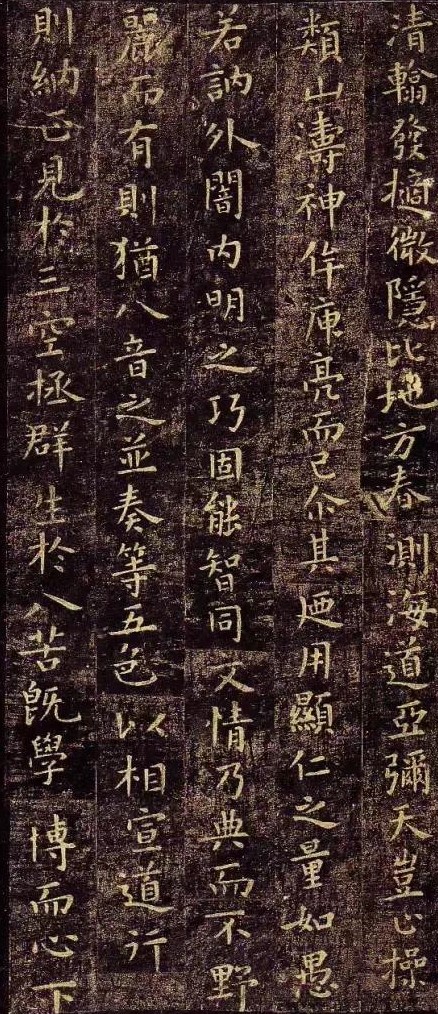 清翰發擿微隱比地方春測海道亞彌天豈止操
類山濤神侔庾亮而已尒其迺用顯仁之量如愚
若訥外闇内明之巧固能智同文情乃典而不野
麗而有則猶八音之並奏等五色以相宣道行
則納正見於三空拯群生於八苦既學博而心下